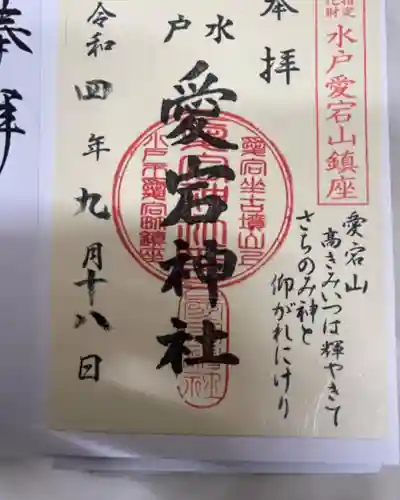 指定
文化財
水戸愛宕山鎮座
奉拝
愛宕山
高きみいつは輝やきて
さちのみ神と
仰がれにけり
水戸
愛宕神社
愛宕坐古墳山上
水戸市愛宕町鎮座
令和四年九月十八日
奉拝